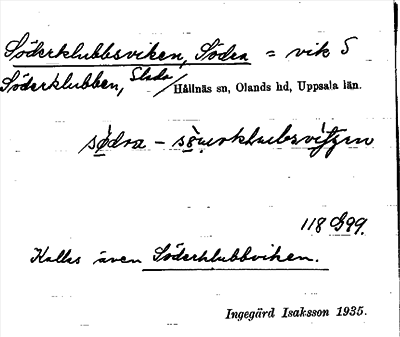 Söderklubbsviken, Södra = vik S
Söderklubben, Slada/Hållnäs sn, Olands hd, Uppsala län.
118 G99.
Kallas även Söderklubbviken.
Ingegärd Isaksson 1935.